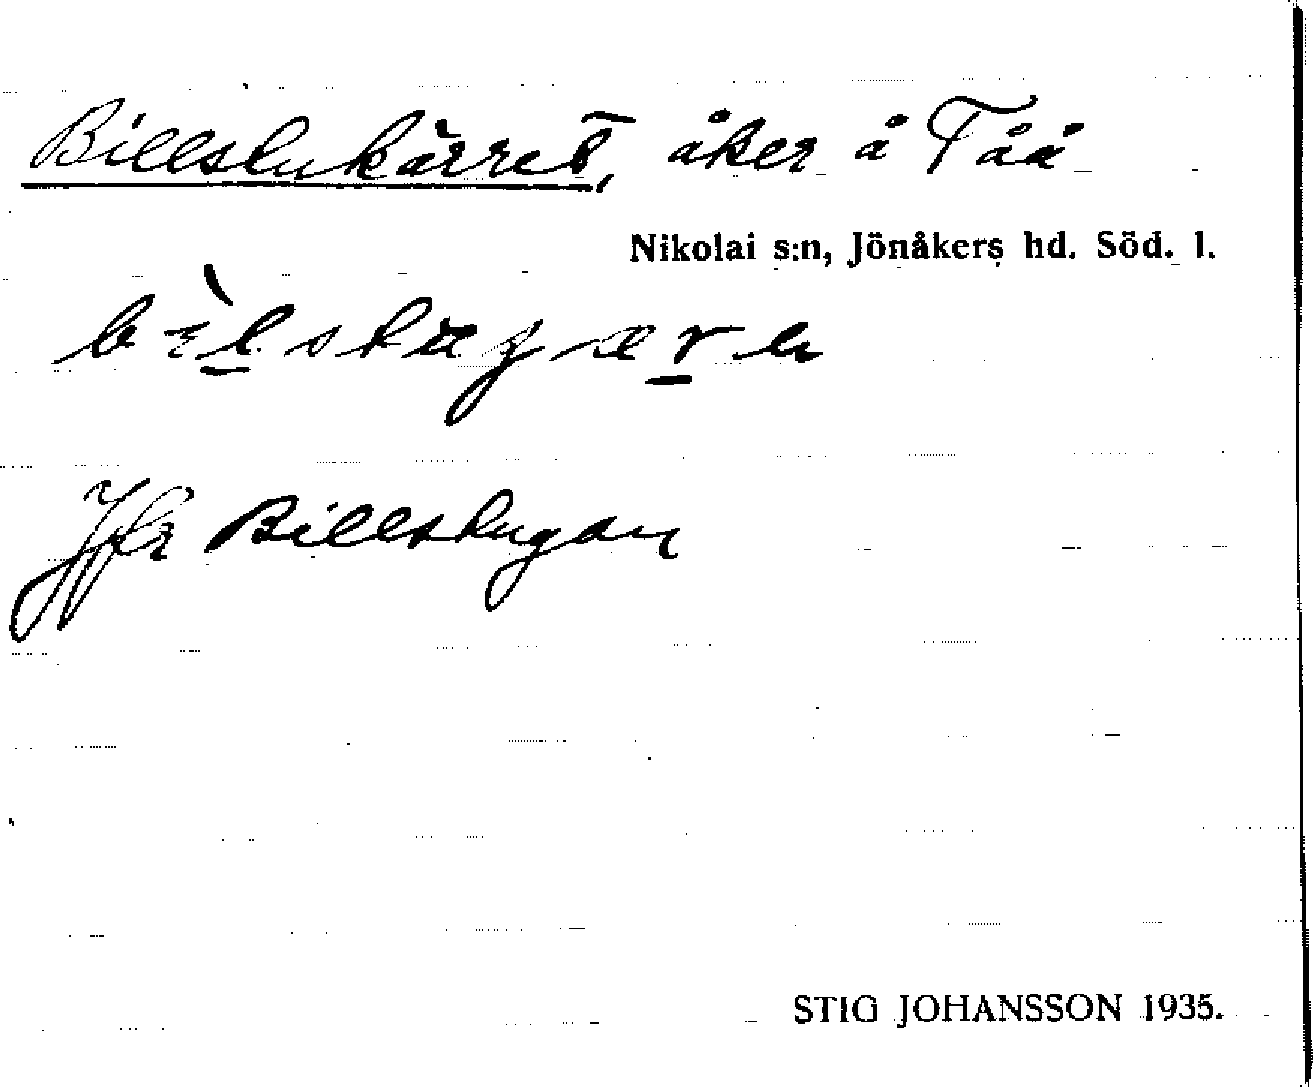 Billslukärret, åker å Tåå
Nikolai s:n, Jönåkers hd. Söd. l.
Jfr Billslugan
STIG JOHANSSON 1935.